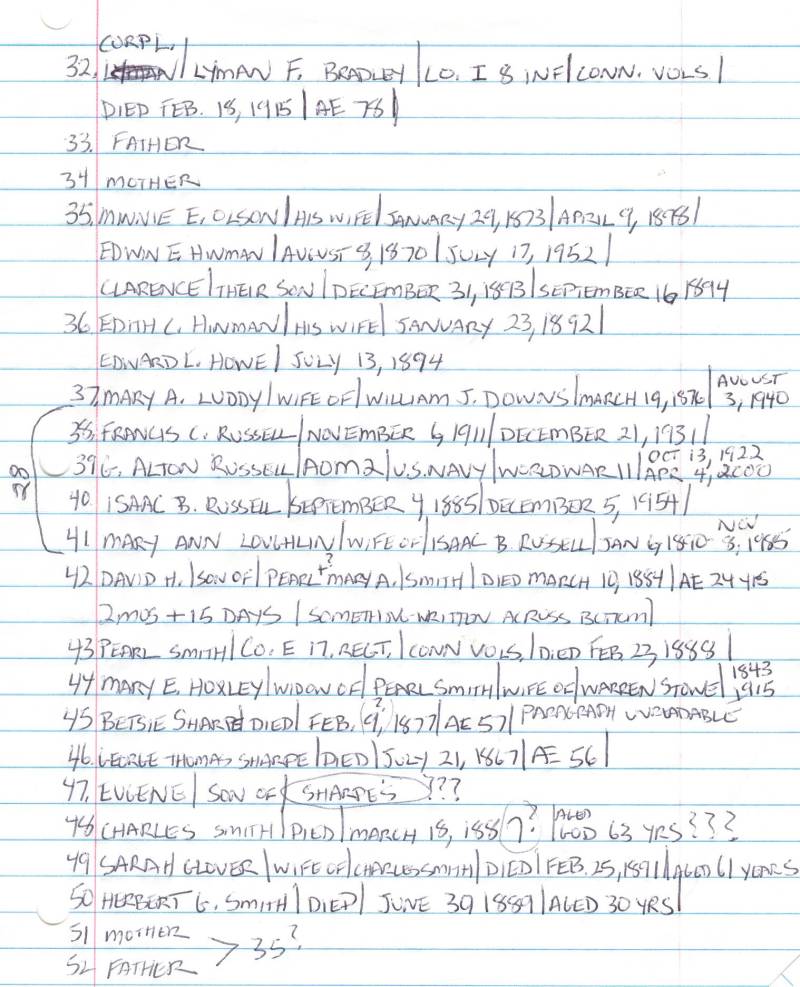 CORPL. |
32. LYMAN | LYMAN F. BRADLEY | CO. I 8 INF | CONN. VOLS. |
DIED FEB. 18, 1915 | AE 78 |
33. FATHER
34 MOTHER
35. MINNIE E. OLSON | HIS WIFE | JANUARY 29, 1873 | APRIL 9, 1898 |
EDWIN E. HINMAN | AUGUST 8, 1870 | JULY 17, 1952 |
CLARENCE | THEIR SON | DECEMBER 31, 1893 | SEPTEMBER 16, 1894
36. EDITH C. HINMAN | HIS WIFE | JANUARY 23, 1892 |
EDWARD L. HOWE | JULY 13, 1894
37. MARY A. LUDDY | WIFE OF | WILLIAM J. DOWNS | MARCH 19, 1876 | AUGUST 3, 1940
38. FRANCIS C. RUSSELL | NOVEMBER 6, 1911 | DECEMBER 21, 1931 |
39 G. ALTON RUSSELL | AOM2 | U.S. NAVY | WORLD WAR II | OCT 13, 1922 APR 4, 2000
28
40. ISAAC B. RUSSELL | SEPTEMBER 4, 1885 | DECEMBER 5, 1954 |
41 MARY ANN LOUGHLIN | WIFE OF | ISAAC B. RUSSELL | JAN 6, 1890 - NOV 8, 1985
42 DAVID H. | SON OF | PEARL +? MARY A. | SMITH | DIED MARCH 10, 1884 | AE 24 YRS
2 MOS + 15 DAYS [SOMETHING WRITTEN ACROSS BOTTOM]
43 PEARL SMITH | CO. E 17. REGT. | CONN VOLS. | DIED FEB 23, 1888 |
44 MARY E. HOXLEY | WIDOW OF | PEARL SMITH | WIFE OF | WARREN STOWE | 1843 1915
45 BETSIE SHARPE DIED | FEB. (9?), 1877 | AE 57 | PARAGRAPH UNREADABLE
46. GEORGE THOMAS SHARPE | DIED | JULY 21, 1867 | AE 56 |
47. EUGENE | SON OF | SHARPE'S ???
48 CHARLES SMITH | DIED | MARCH 18, 188 7? | AGED GOD 63 YRS ???
49 SARAH GLOVER | WIFE OF | CHARLES SMITH | DIED | FEB. 25, 1891 | AGED 61 YEARS
50 HERBERT G. SMITH | DIED | JUNE 30 1889 | AGED 30 YRS |
51 MOTHER
> 35?
52 FATHER